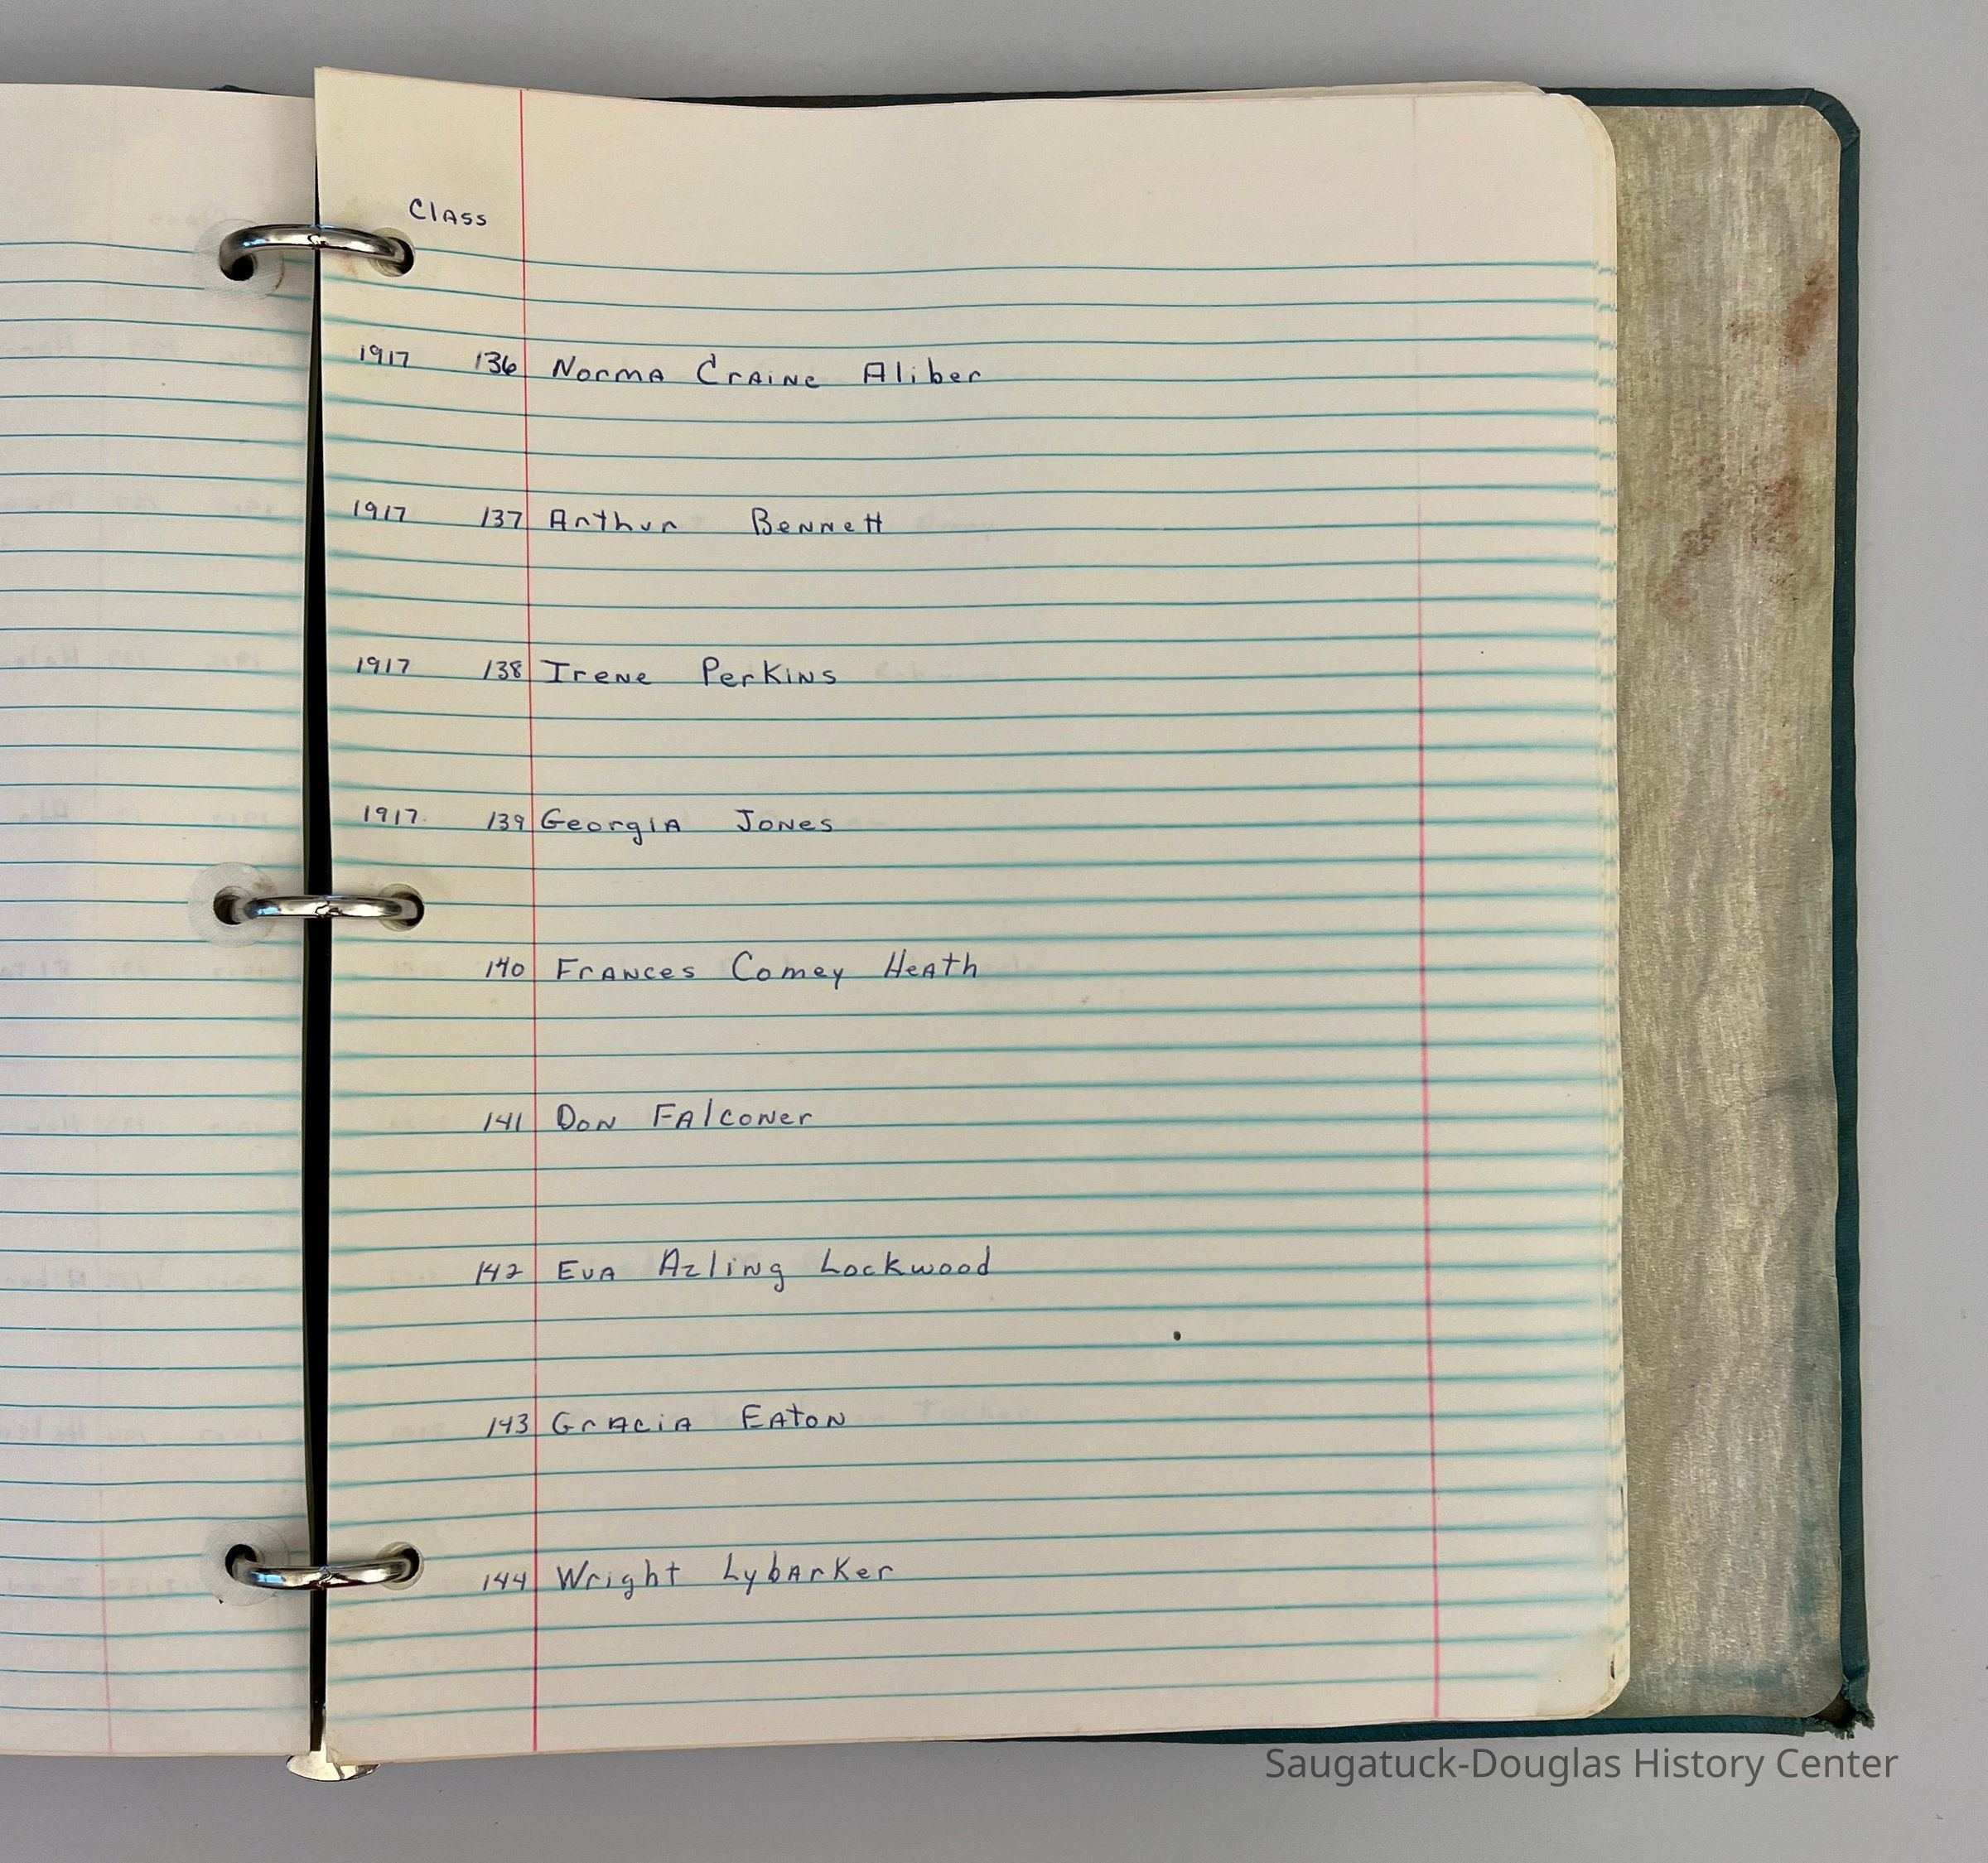 Class
1917 136 Norma Craine Aliber
1917 137 Arthur Bennett
1917 138 Irene Perkins
1917 139 Georgia Jones
140 Frances Comey Heath
141 Don Falconer
142 Eva Azling Lockwood
143 Gracia Eaton
144 Wright Lybarker
Saugatuck-Douglas History Center